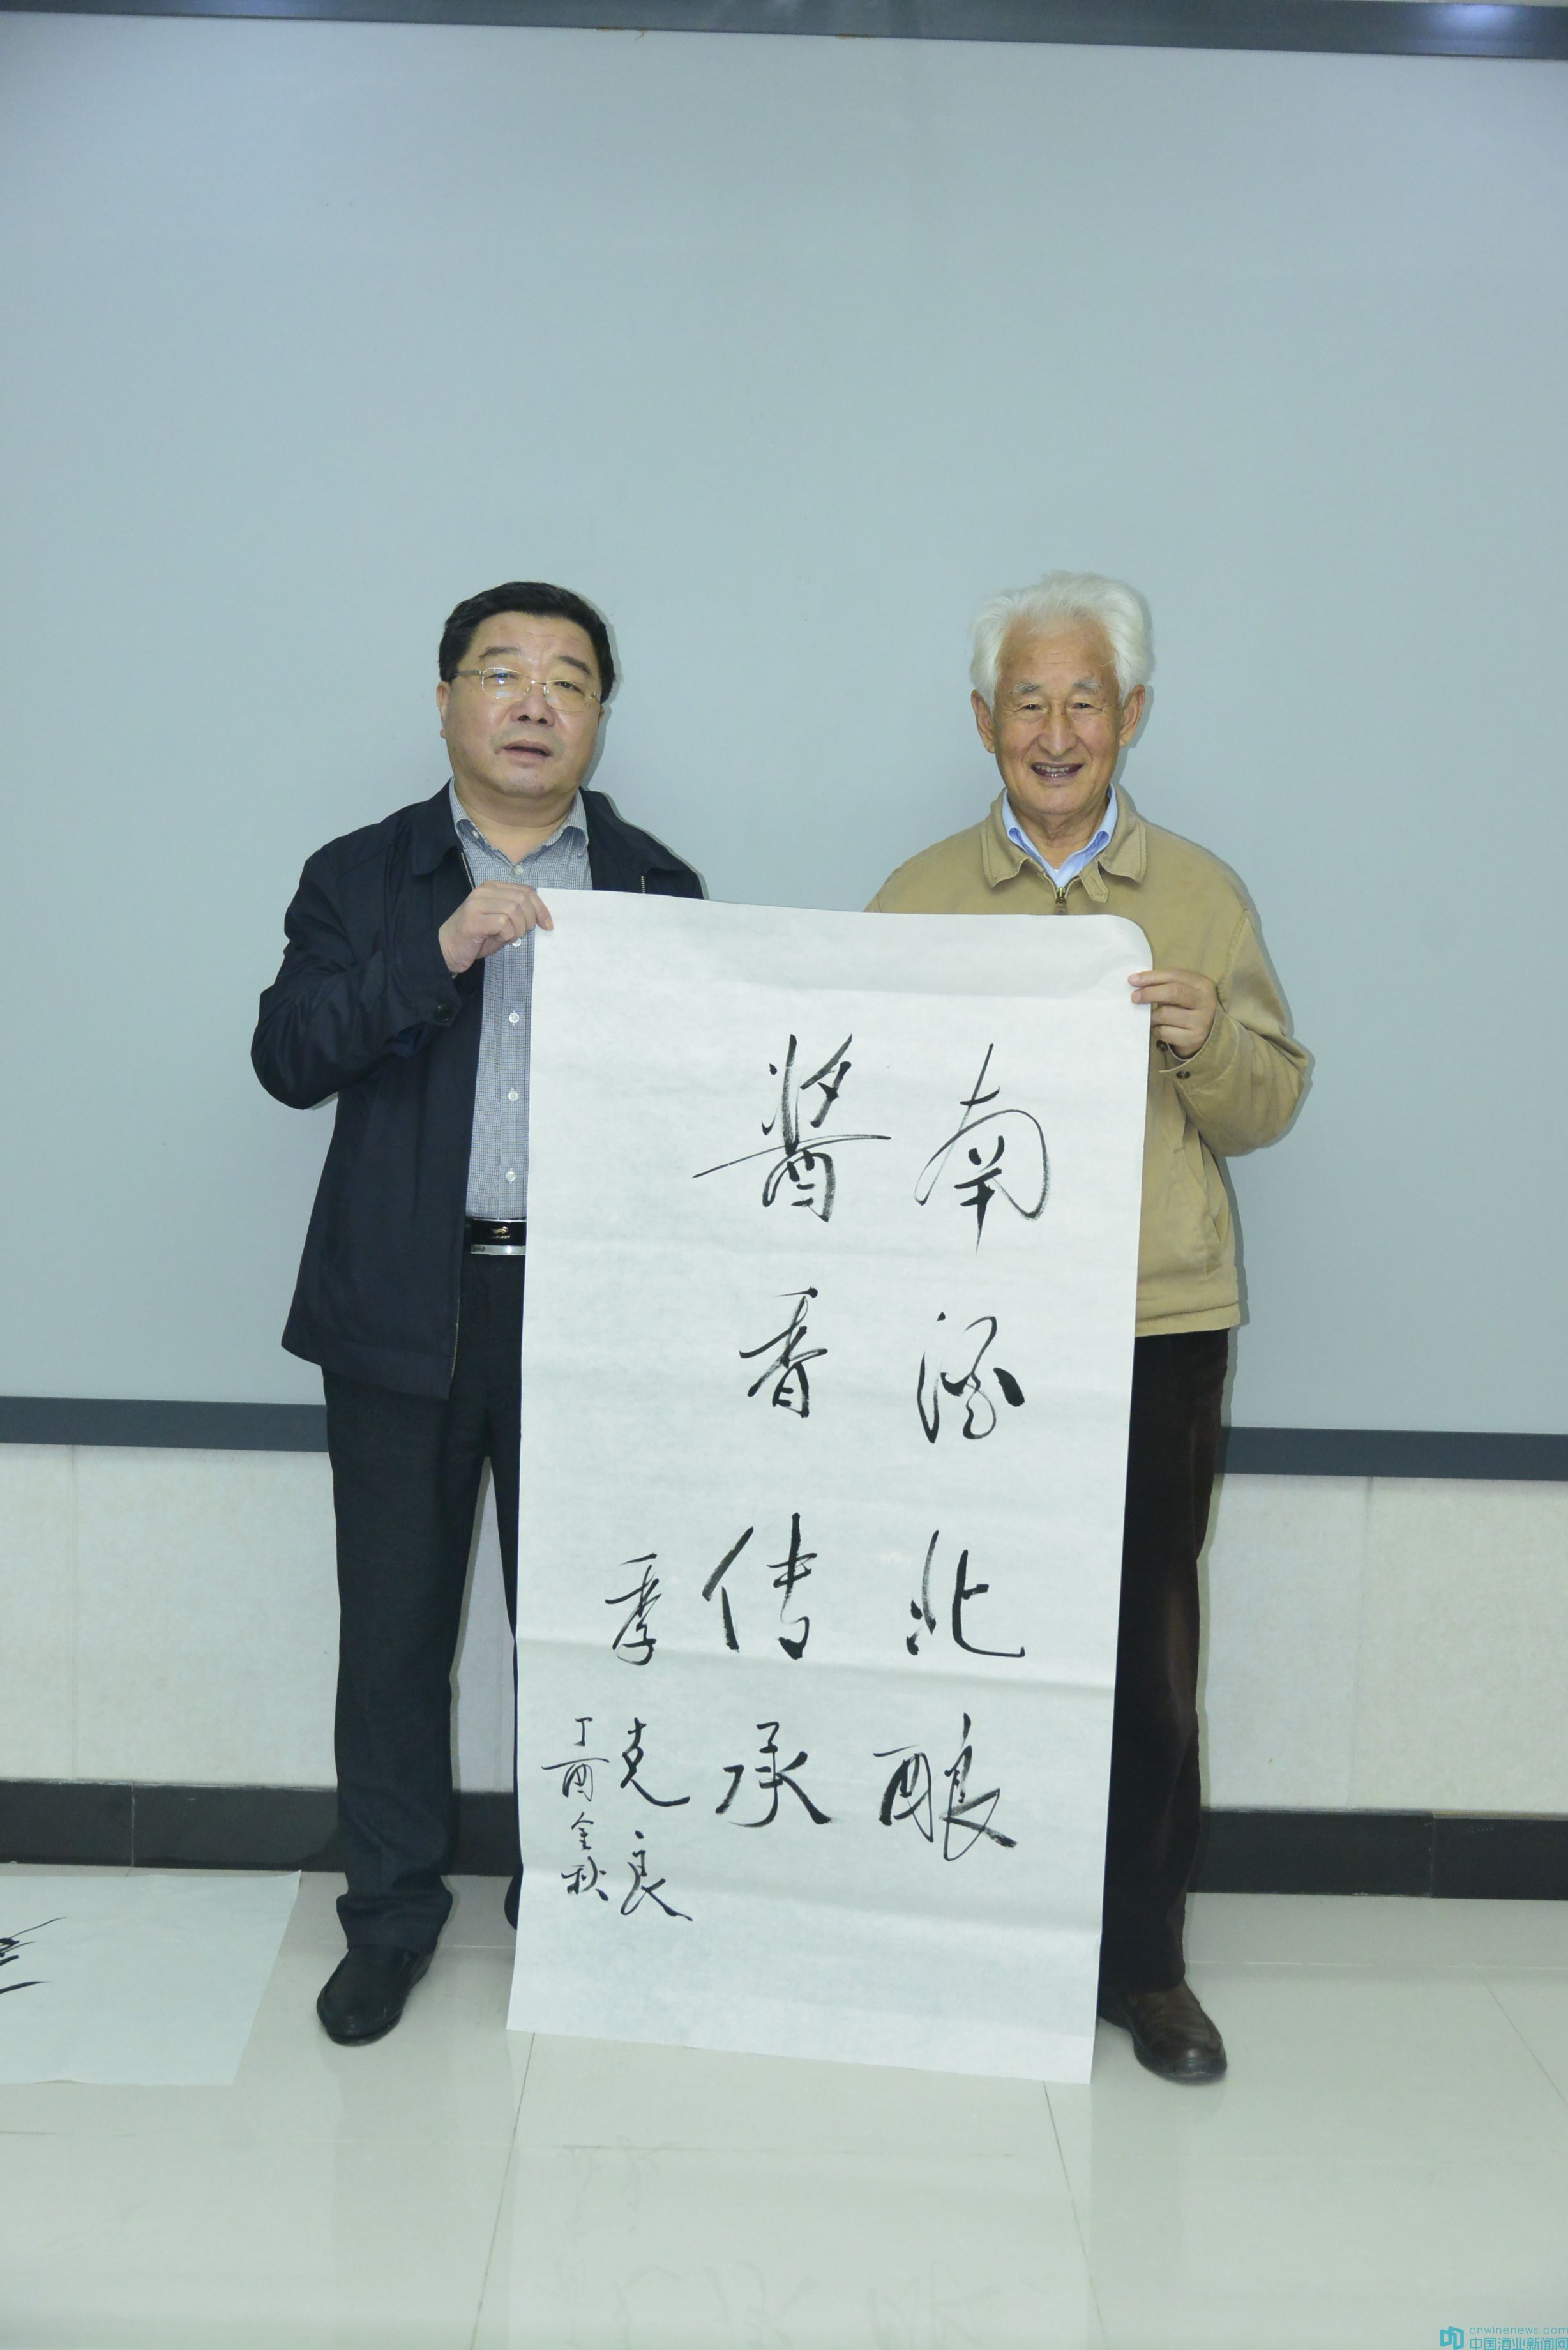 南酒北酿
酱香传承
季克良
丁酉金秋
cnwinenews.com
中国酒业新闻网